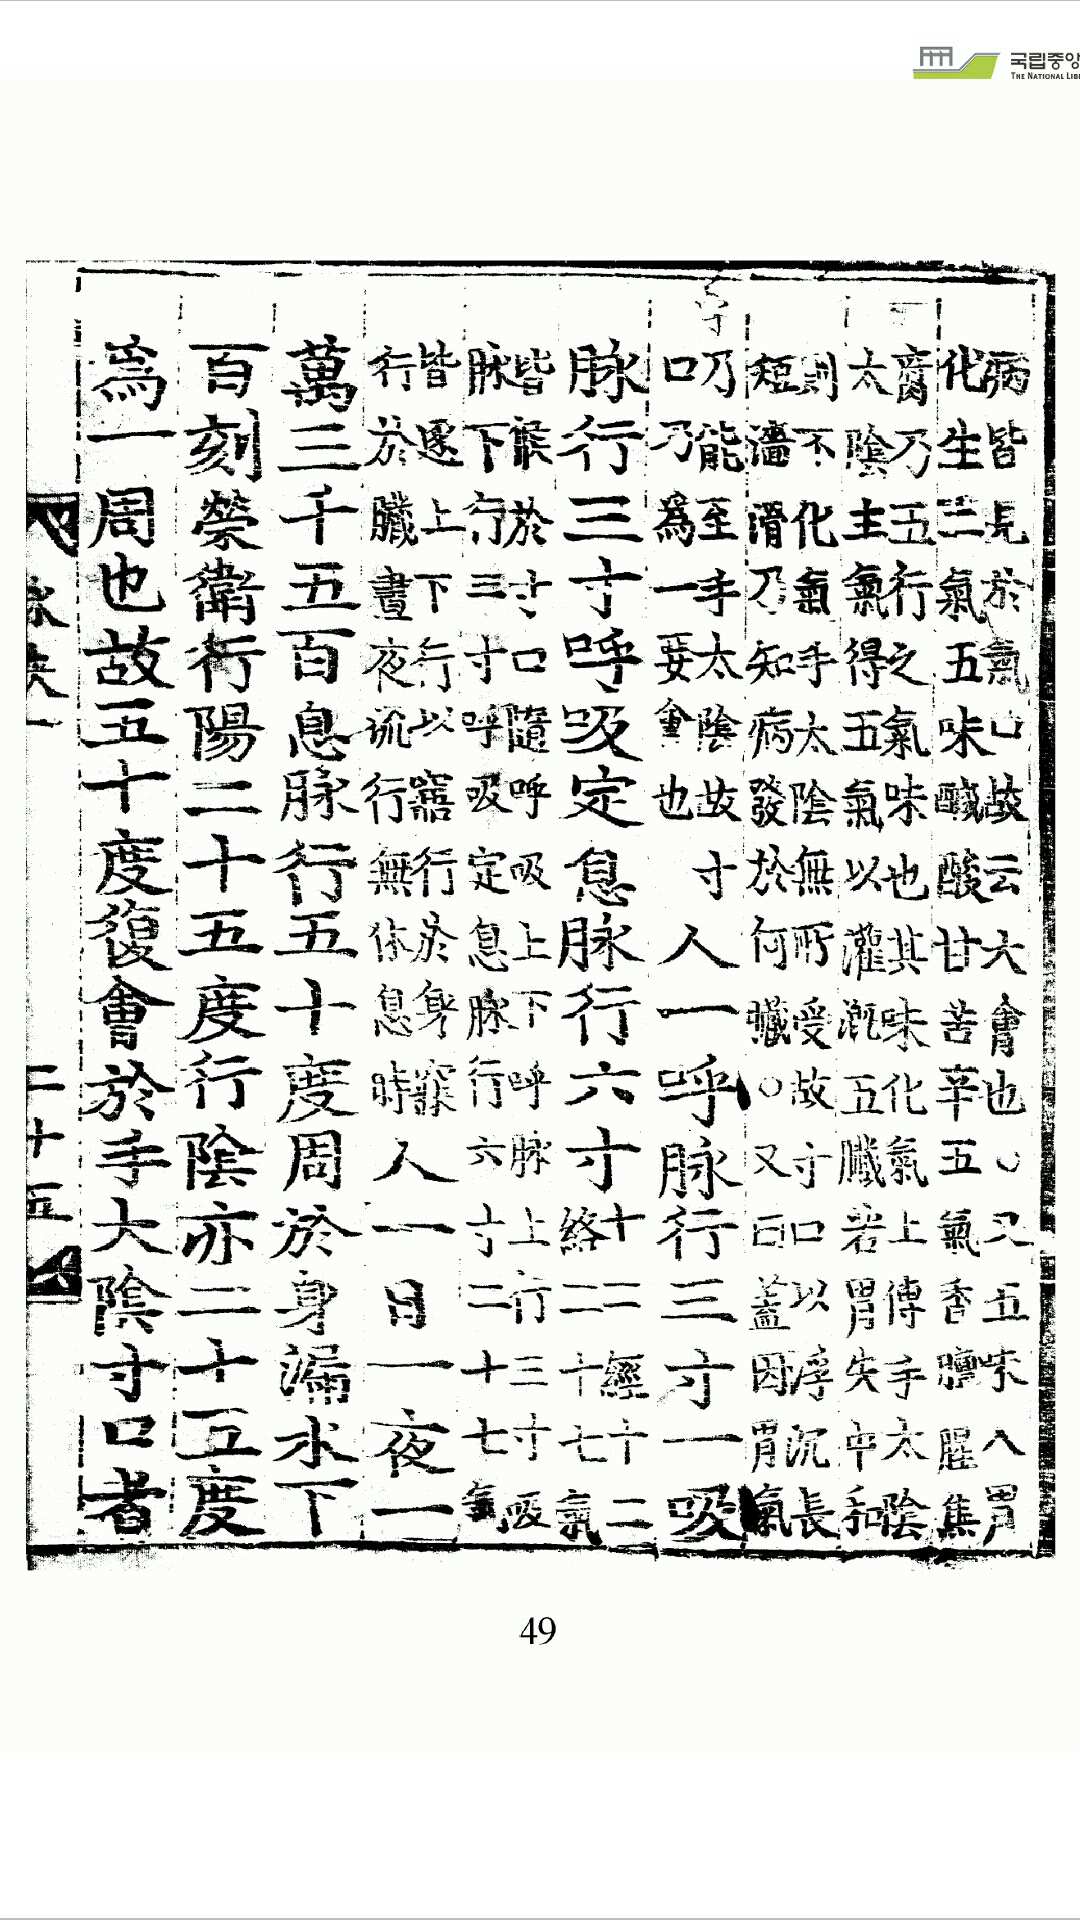 국립중앙
THE NATIONAL LIB
病皆見於氣口故云大會也○又五味入胃
化生三氣五味鹹酸甘苦辛五氣香臊腥焦
腐乃五行之氣味也其味化氣上傳手太陰
太陰主氣得五氣以灌漑五臟若胃失中和
則不化氣手太陰無所受故寸口以浮沉長
短濇滑乃知病發於何臟○又曰蓋因胃氣
乃能至手太陰故寸
口乃爲一要會也
人一呼脉行三寸一吸
脉行三寸呼吸定息脉行六寸
十二經十二
絡二十七氣
皆候於寸口隨呼吸上下呼脉上行三寸吸
脉下行三寸呼吸定息脉行六寸二十七氣
皆逐上下行以
行於臟晝夜流行無休息時
人一日一夜一
萬三千五百息脉行五十度周於身漏水下
百刻榮衛行陽二十五度行陰亦二十五度
為一周也故五十度復會於手太陰寸口者
二十五
49